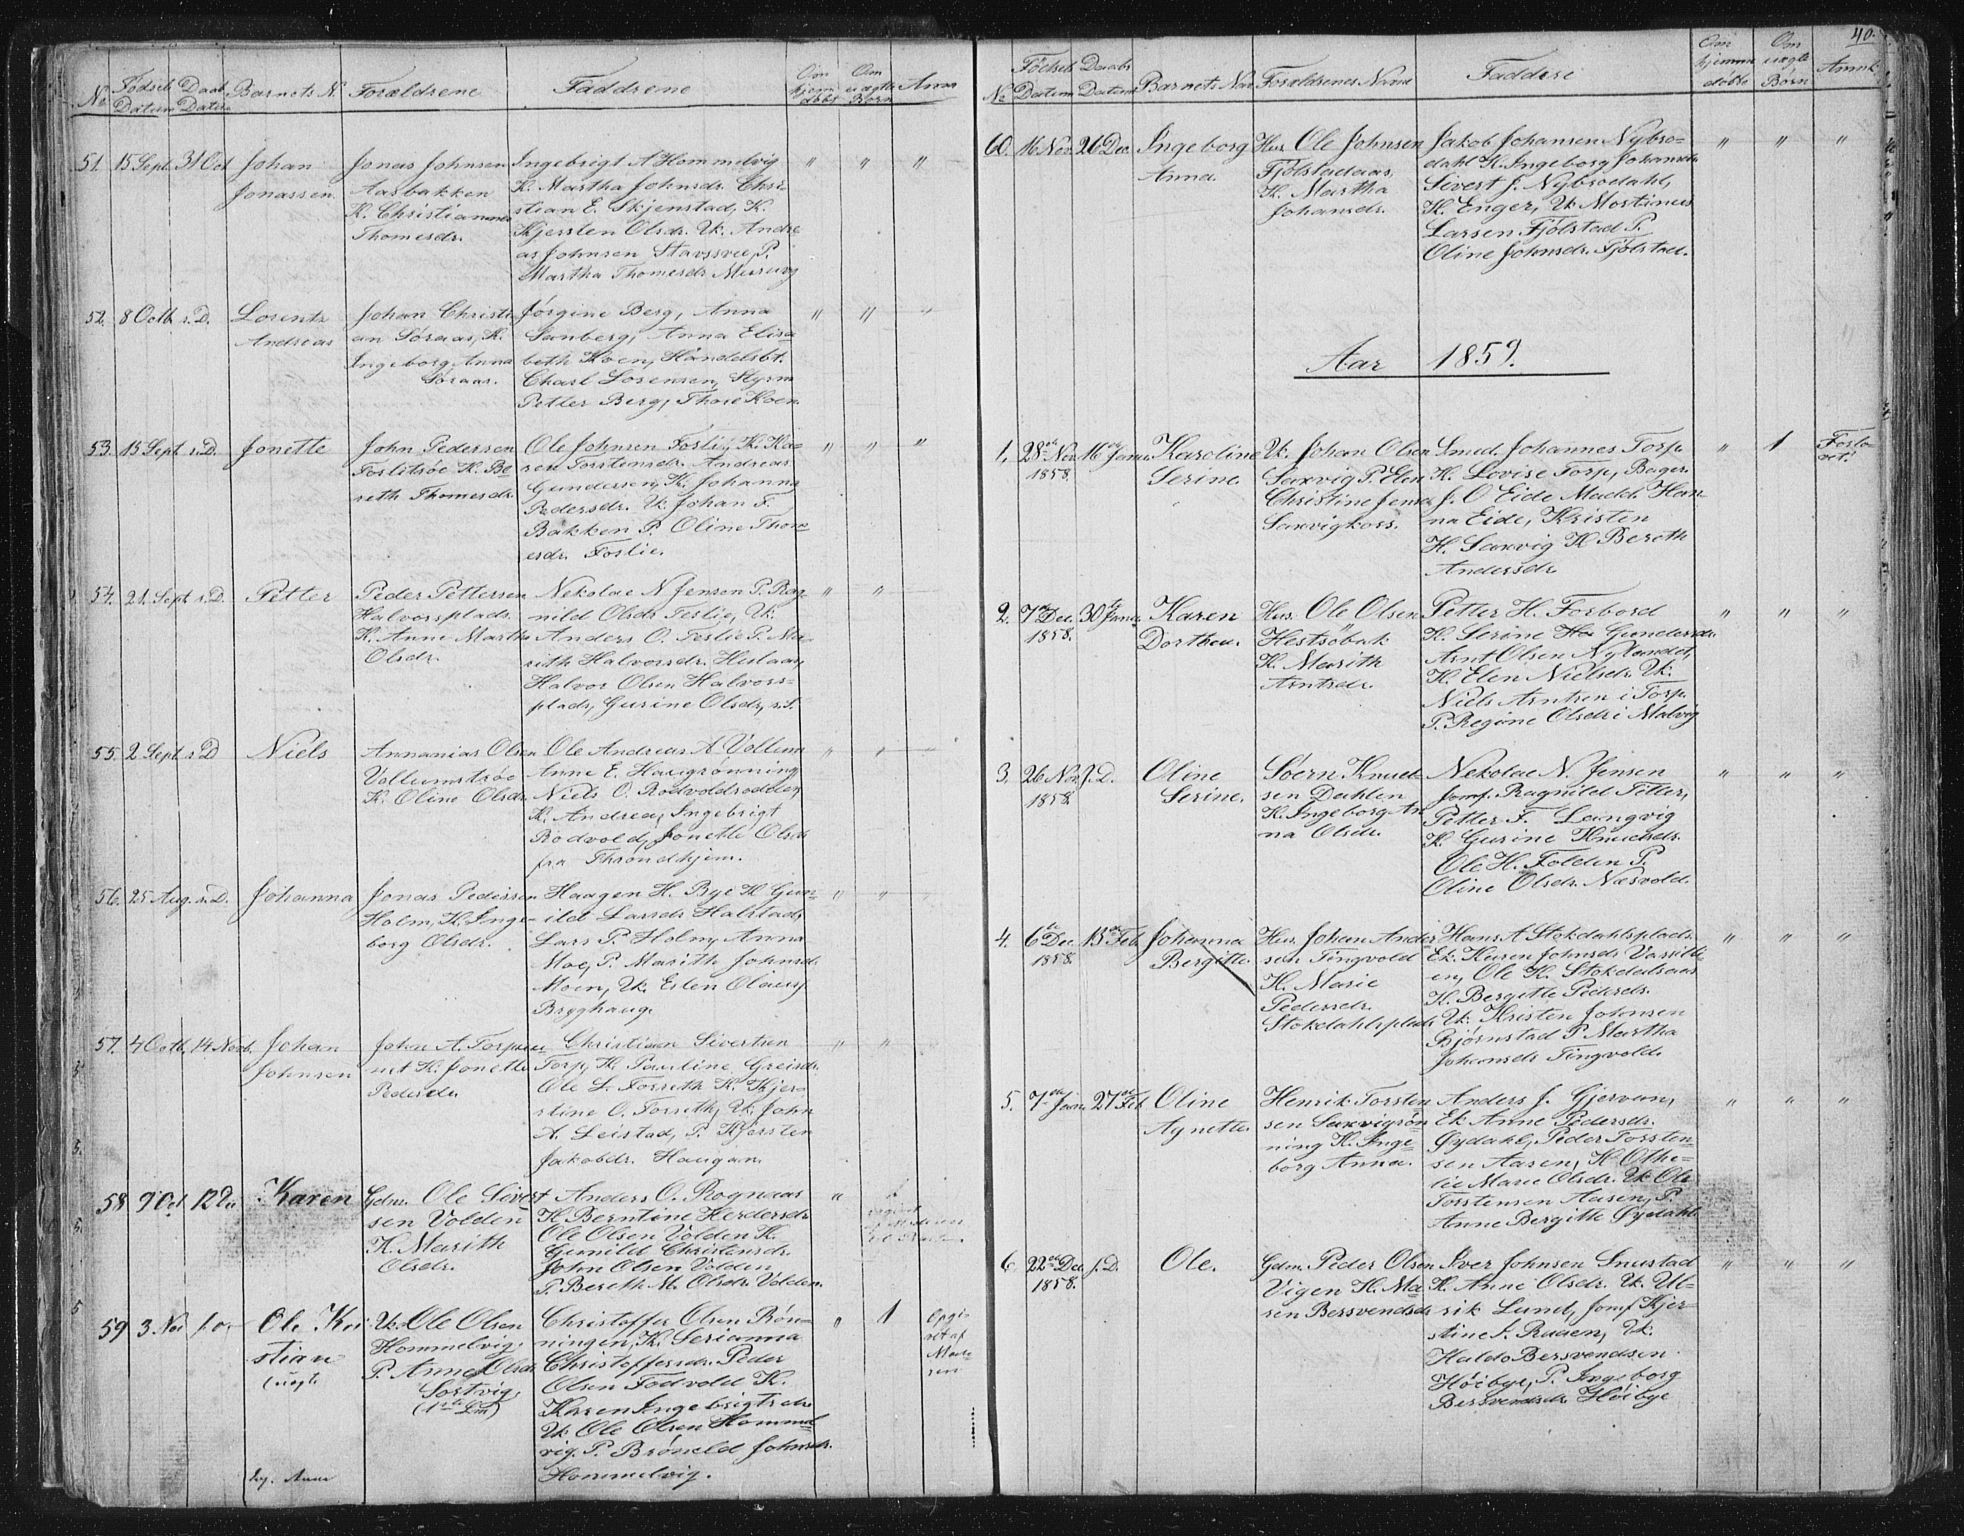 40.
No Fødsels Datum Daab Datum Barnets N. Forældrene Faddrene Om hjem døbt Om uægte Børn Anm
51. 15 Sept. 31 Oct Johan Jonassen
Jonas Johnsen
Aasbakken
K. Christianna
Thomesdr.
Ingebrigt A Hommelvig
K. Martha Johnsdr. Chri-
stian E. Skjenstad, K.
Kjersten Olsdr. Uk. Andre
as Johnsen Stavssve, P.
Martha Thomesdr. Muruvig
" " "
52. 8 Octb. s.D. Lorents Andreas
Johan Christi
an Søraas, K.
Ingeborg Anna
Søraas.
Jørgine Berg, Anna
Sanberg, Anna Elisa
beth Koen, Handelsbt.
Charl Sorensen, Styrm
Petter Berg, Thore Koen
" " "
53. 15 Sept s.D. Jonette
John Pedersen
Foslitrøe K. Be
reth Thomesdr.
Ole Johnsen Foslie, K. Ka-
ren Torstensdr. Andreas
Gundersen, K. Johanna
Pedersdr. Uk. Johan F.
Bakken P. Oline Thom
esdr. Foslie.
" " "
54. 21. Sept s.D. Petter
Peder Pettersen
Halvorsplads.
K. Anne Martha
Olsdr.
Nekolae N Jensen P. Rag
nild Olsdr. Foslie, Uk.
Anders O. Foslie P. Ma-
rith Halvorsdr. Huslaas
Halvor Olsen Halvors-
plads, Gurine Olsdr, s.s.
" "
55. 2 Sept s.D Niels
Annanias Olsen
Vollumstrøe
K. Oline Olsdr.
Ole Andreas A. Vollum
Anne E. Haugrønning
Niels O. Rodvoldrødden
K. Andrea, Ingebrigt
Rodvold, Jonette Olsdr
fra Throndhjem.
" " "
56. 25 Aug. s.D. Johanna
Jonas Pedersen
Holm, K. Inge-
borg Olsdr.
Haagen H. Bye K Gun-
ild Larsdr Halstad,
Lars P. Holm, Anna
Moe, P. Marith Johnsd.
Moen, Uk. Erlen Olaus
Brygghaug.
" "
57. 4 Octb. 14 Novb. Johan Johnsen
John A. Torpmo
net K. Jonette
Pedersdr.
Christian Sivertsen
Torp, K. Pauline Greisdr.
Ole L. Forseth K. Kjer-
stine O. Forseth, Uk. John
A. Leistad, P. Kjersten
Jakobdr. Haugan.
" "
58 9 Oct 12 De Karen
Gdm. Ole Sivert
sen Volden
K. Marith
Olsdr.
Anders O. Rognaas
K. Berntine Herdersdr
Ole Olsen Volden K.
Gunild Christensdr.
John Olsen Volden
P. Bereth M. Olsdr. Volden.
"
59 3 Nov s.D. Ole Kri
stian
(uægte
Uk. Ole Olsen
Hommelvig.
P. Anne Olsdr
Sartvig.
Christoffer Olsen Røn-
ningen, K. Serianna
Christoffersdr. Peder
Olsen Fodvold K.
Karen Ingebrigtsdr
Uk. Ole Olsen Hommel
vig. P. Brønild Johnsdr.
Hommelvig.
" 1 Opgi-
vet af
Mode
ren
No Fødsels Datum Daabs Datum Barnets Nav Forældrenes Navne Faddere Om hjemme døbte Om uægte Børn Anmk
60. 16 Nov. 26 Dec. Ingeborg
Anna.
Hus. Ole Johnsen
Fjølstadaas,
K. Martha
Johansdr.
Jakob Johansen Nybro-
dahl K. Ingeborg Johansdr.
Sivert J. Nybrodahl,
K. Enger, Uk Mortinus
Larsen Fjølstad P.
Oline Johnsdr. Fjølstad.
" " "
Aar 1859.
1. 28de Nov. 1858. 16de Janr. Karoline
Serine.
Uk. Johan Olsen
Saxvig P. Elen
Christine Jensdr
Saxvigkors.
Smed. Johannes Torp.
K. Lovise Torp, Bager.
J. O Eide Madd. Han
na Eide, Kristen
H. Saxvig K Bereth
Andersdr
" 1 Forlo-
vet.
2. 7de Dec. 1858. 30te Janr. Karen
Dorthea.
Hus. Ole Olsen
Hestsøbak
K. Marith
Arntsdr.
Petter H. Forbord
K. Serine Gundersdr.
Arnt Olsen Nylandet,
K. Elen Nielsdr. Uk.
Niels Arntsen i Torp.
P. Regine Olsdr i Malvig
" " "
3. 26 Nov. 1858. s.D. Oline
Serine.
Søern Knud-
sen Dahlen
K. Ingeborg An
na Olsdr.
Nekolae N. Jensen
Jomf. Ragnild Petter,
Petter F. Langvig
K. Gurine Knudsdr.
Ole H. Folden P.
Oline Olsdr. Næsvold.
" " "
4. 6te Dec. 1858. 13de Feb. Johanna
Bergitte.
Hus. Johan Ander
sen Tingvold
K. Marie
Pedersdr.
Stokdahlsplads
Hans A Stokdahlsplads.
Ek. Karen Johnsdr.
en, Ole K. Stokdalsaas
K. Bergitte Pedersdr.
Uk. Kristen Johnsen
Bjørnstad P. Martha
Johansdr. Tingvold.
" " "
5. 7de Janr. 27de Feb Oline
Agnette.
Henrik Torsten
sen Saxvigrøn
ning K. Inge
borg Anna.
Anders J. Gjervan,
Ek Anne Pedersdr.
Øydahl, Peder Torsten-
sen Aasen, K. Othe-
lie Marie Olsdr. Uk Ole
Torstensen Aasen, P.
Anne Bergitte Øydahl.
" " "
6. 22de Dec. 1858. s.D. Ole.
Gdm. Peder Olsen
Vigen K. Ma-
ren Bersvendsdr
Iver Johnsen Snustad
K. Anne Olsdr. Uk. Ul-
rik Lund, Jomf Kjer-
stine J. Raaen, Uk.
Haldo Bersvendsen
Høibye, P. Ingeborg
Bersvendsdr. Høibye
" " "